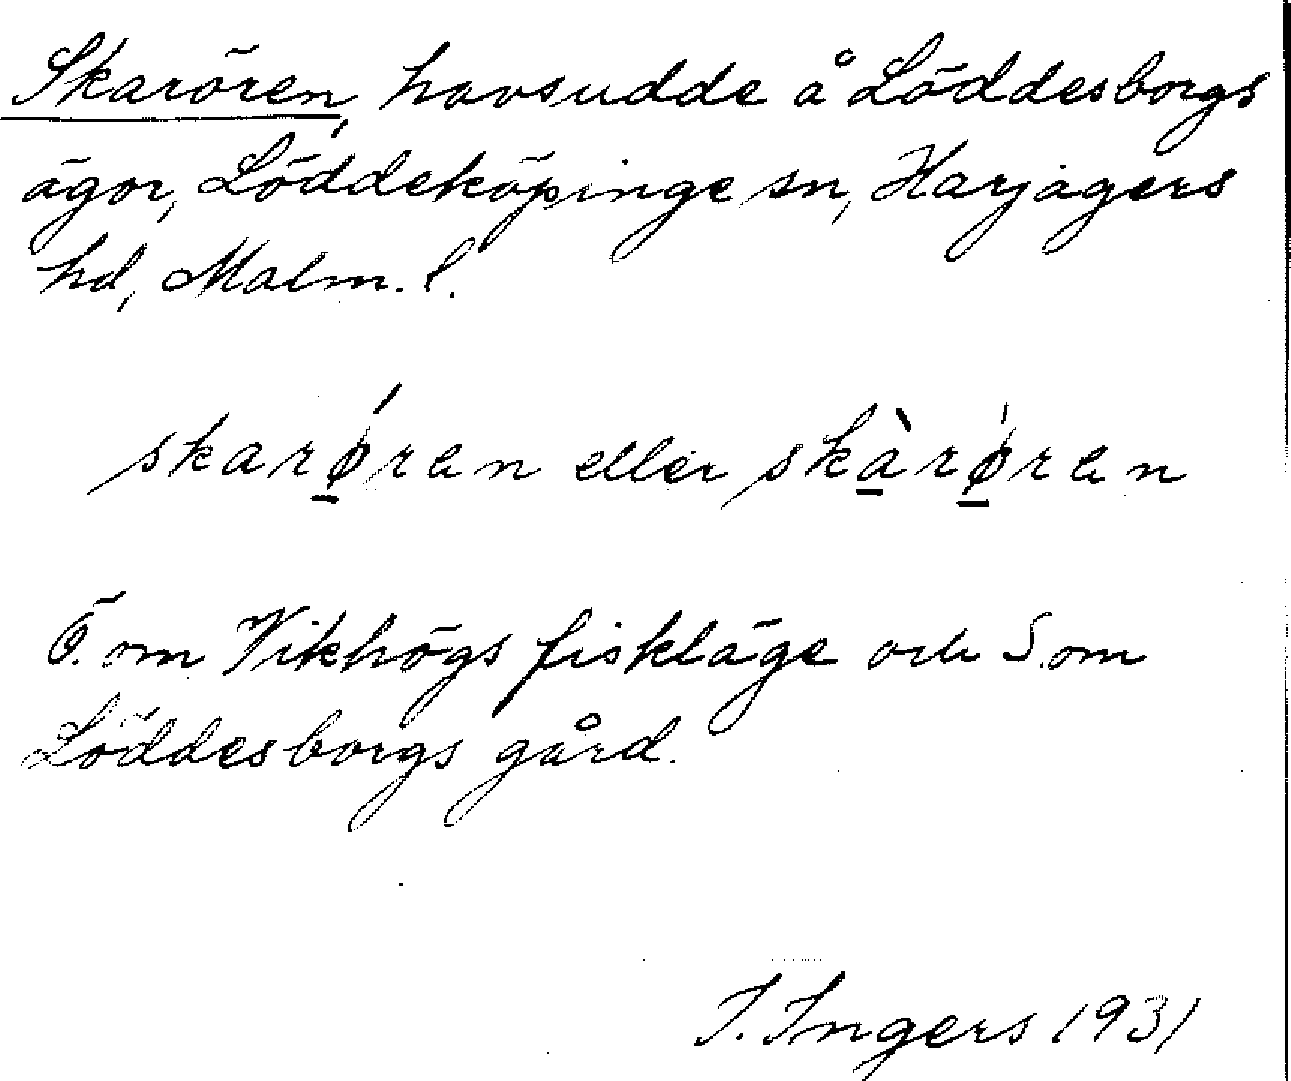 Skarören, havsudde å Löddesborgs
ägor, Löddeköpinge sn, Harjagers
hd, Malm. l.
skarǿ̱ren eller skà̱rø̱̀ren
Ö. om Vikhögs fiskläge och S. om
Löddesborgs gård.
I. Ingers 1931